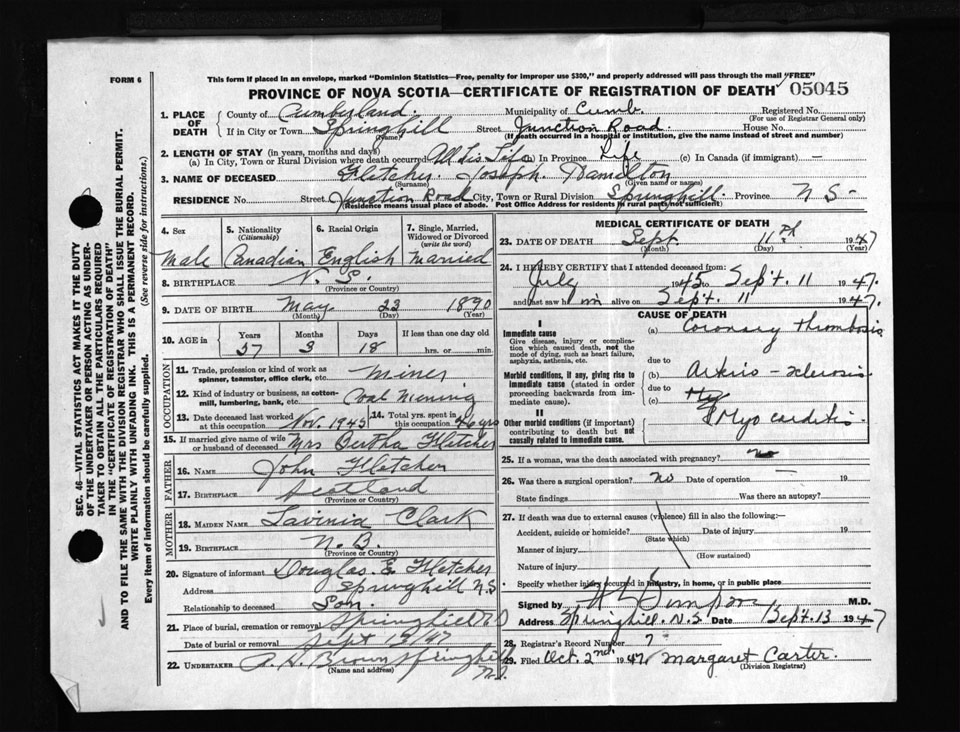 FORM 6
This form if placed in an envelope, marked "Dominion Statistics—Free, penalty for improper use $300," and properly addressed will pass through the mail "FREE"
PROVINCE OF NOVA SCOTIA—CERTIFICATE OF REGISTRATION OF DEATH 05045
1. PLACE OF DEATH
County of Cumberland Municipality of Cumb. Registered No.
(For use of Registrar General only)
If in City or Town Springhill Street Junction Road House No.
(Name) (If death occurred in a hospital or institution, give the name instead of street and number)
2. LENGTH OF STAY (in years, months and days)
(a) In City, Town or Rural Division where death occurred All His Life (b) In Province Life (c) In Canada (if immigrant) —
3. NAME OF DECEASED Fletcher Joseph Hamilton
(Surname) (Given name or names)
RESIDENCE No. Street Junction Road City, Town or Rural Division Springhill Province N S -
(Residence means usual place of abode. Post Office Address for residents in rural parts not sufficient)
4. Sex
Male
5. Nationality
(Citizenship)
Canadian
6. Racial Origin
English
7. Single, Married, Widowed or Divorced
(write the word)
Married
8. BIRTHPLACE N. S.
(Province or Country)
9. DATE OF BIRTH May 23 1890
(Month) (Day) (Year)
10. AGE in
Years Months Days If less than one day old
57 3 18 hrs. or min.
OCCUPATION
11. Trade, profession or kind of work as spinner, teamster, office clerk, etc. Miner
12. Kind of industry or business, as cotton-mill, lumbering, bank, etc. Coal Mining
13. Date deceased last worked at this occupation Nov. 1945 14. Total yrs. spent in this occupation 46 yrs
15. If married give name of wife or husband of deceased Mrs Bertha Fletcher
FATHER
16. Name John Fletcher
17. Birthplace Scotland
(Province or Country)
MOTHER
18. MAIDEN NAME Lavinia Clark
19. BIRTHPLACE N. B.
(Province or Country)
20. Signature of informant Douglas E Fletcher
Address Springhill N.S
Relationship to deceased Son.
21. Place of burial, cremation or removal Springhill
Date of burial or removal Sept 13 '47
22. UNDERTAKER Brown Springhill N.S.
(Name and address)
MEDICAL CERTIFICATE OF DEATH
23. DATE OF DEATH Sept 11th 1947
(Month) (Day) (Year)
24. I HEREBY CERTIFY that I attended deceased from:
July 1945 to Sept. 11 1947.
and last saw him alive on Sept. 11 1947.
CAUSE OF DEATH
I
Immediate cause
Give disease, injury or complication which caused death, not the mode of dying, such as heart failure, asphyxia, asthenia, etc.
(a) Coronary thrombosis
due to
Morbid conditions, if any, giving rise to immediate cause (stated in order proceeding backwards from immediate cause).
(b) Arterio-sclerosis
due to
(c)
II
Other morbid conditions (if important) contributing to death but not causally related to immediate cause.
Myocarditis
25. If a woman, was the death associated with pregnancy? no
26. Was there a surgical operation? No Date of operation — 19
State findings Was there an autopsy?
27. If death was due to external causes (violence) fill in also the following:—
Accident, suicide or homicide? Date of injury 19
(State which)
Manner of injury
(How sustained)
Nature of injury
Specify whether injury occurred in industry, in home, or in public place
Signed by M.D.
Address Springhill. N.S. Date Sept. 13 1947
28. Registrar's Record Number 7
29. Filed Oct. 2nd 1947 Margaret Carter.
(Division Registrar)
SEC. 46—VITAL STATISTICS ACT MAKES IT THE DUTY
OF THE UNDERTAKER OR PERSON ACTING AS UNDER-
TAKER TO OBTAIN ALL THE PARTICULARS REQUIRED
IN THE "CERTIFICATE OF REGISTRATION OF DEATH"
AND TO FILE THE SAME WITH THE DIVISION REGISTRAR WHO SHALL ISSUE THE BURIAL PERMIT.
WRITE PLAINLY WITH UNFADING INK. THIS IS A PERMANENT RECORD.
Every item of information should be carefully supplied. (See reverse side for instructions.)